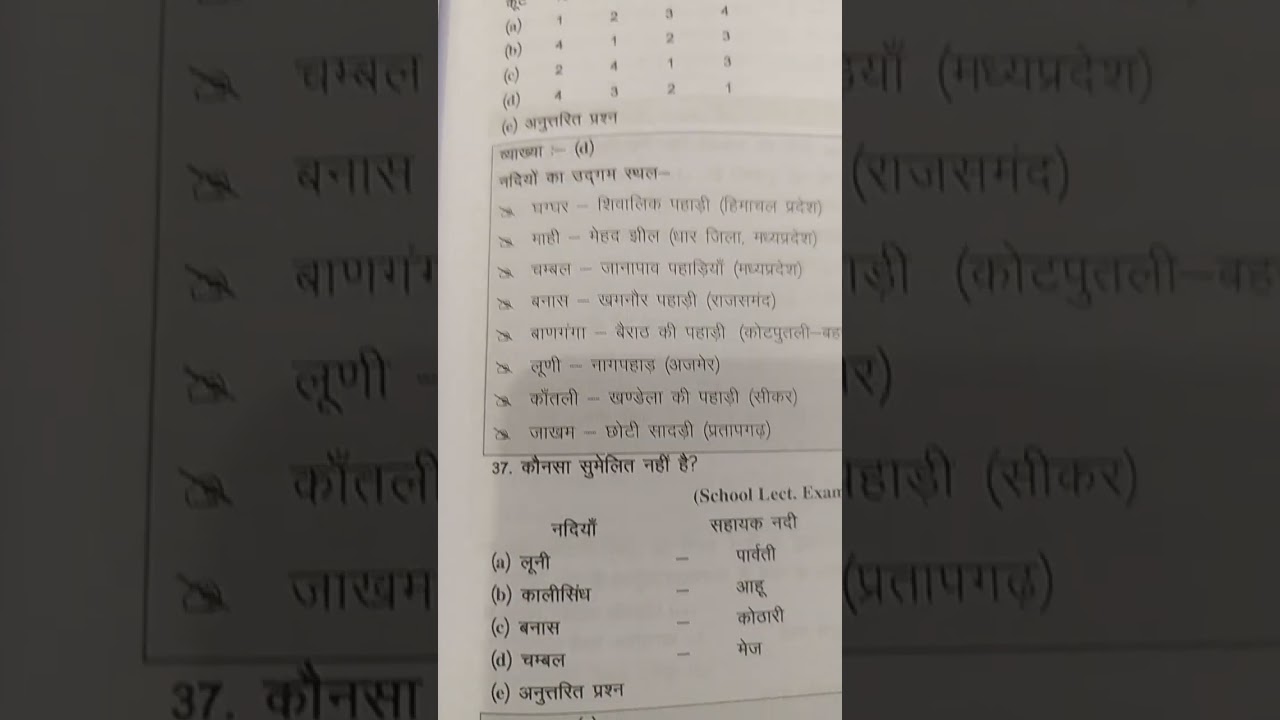 (a) 1 2 3 4
(b) 4 1 2 3
(c) 2 4 1 3
(d) 4 3 2 1
(e) अनुत्तरित प्रश्न
व्याख्या :– (d)
नदियों का उद्गम स्थल–
घग्घर – शिवालिक पहाड़ी (हिमाचल प्रदेश)
माही – मेहद झील (धार जिला, मध्यप्रदेश)
चम्बल – जानापाव पहाड़ियाँ (मध्यप्रदेश)
बनास – खमनौर पहाड़ी (राजसमंद)
बाणगंगा – बैराठ की पहाड़ी (कोटपुतली–बह
लूणी – नागपहाड़ (अजमेर)
काँतली – खण्डेला की पहाड़ी (सीकर)
जाखम – छोटी सादड़ी (प्रतापगढ़)
37. कौनसा सुमेलित नहीं है?
(School Lect. Exam
नदियाँ सहायक नदी
(a) लूनी – पार्वती
(b) कालीसिंध – आहू
(c) बनास – कोठारी
(d) चम्बल – मेज
(e) अनुत्तरित प्रश्न